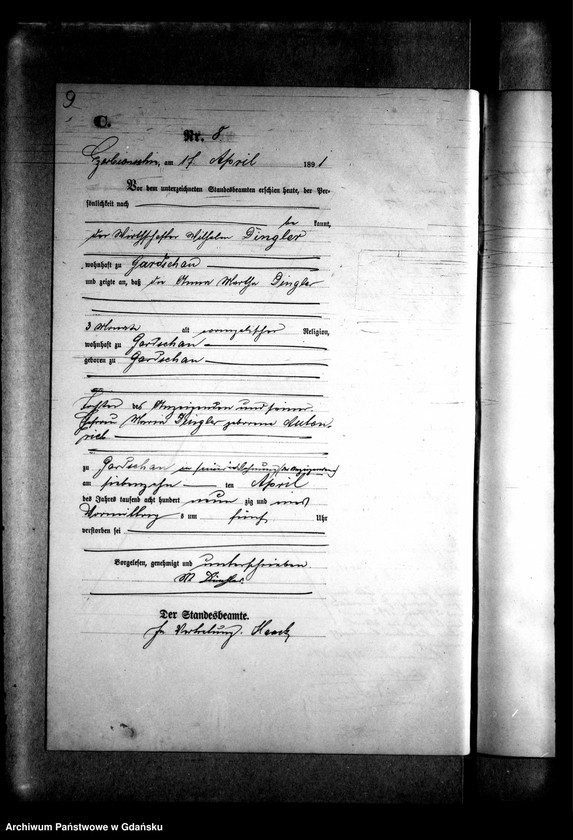 9
C.
Nr. 8
am 17 April 1891
Vor dem unterzeichneten Standesbeamten erschien heute, der Per-
sönlichkeit nach
be kannt,
der Wirthschafter Wilhelm Dingler
wohnhaft zu Gardschau
und zeigte an, daß die Anna Martha Dingler
3 Monate alt evangelischer Religion,
wohnhaft zu Gardschau
geboren zu Gardschau
Tochter des Anzeigenden und seiner
Ehefrau Dingler geborene
zu Gardschau in seiner Wohnung
am siebenzehn ten April
des Jahrs tausend acht hundert neun zig und eins
Vormittag s um fünf Uhr
verstorben sei
Vorgelesen, genehmigt und unterschrieben.
W.
Der Standesbeamte.
In Vertretung.
Archiwum Państwowe w Gdańsku